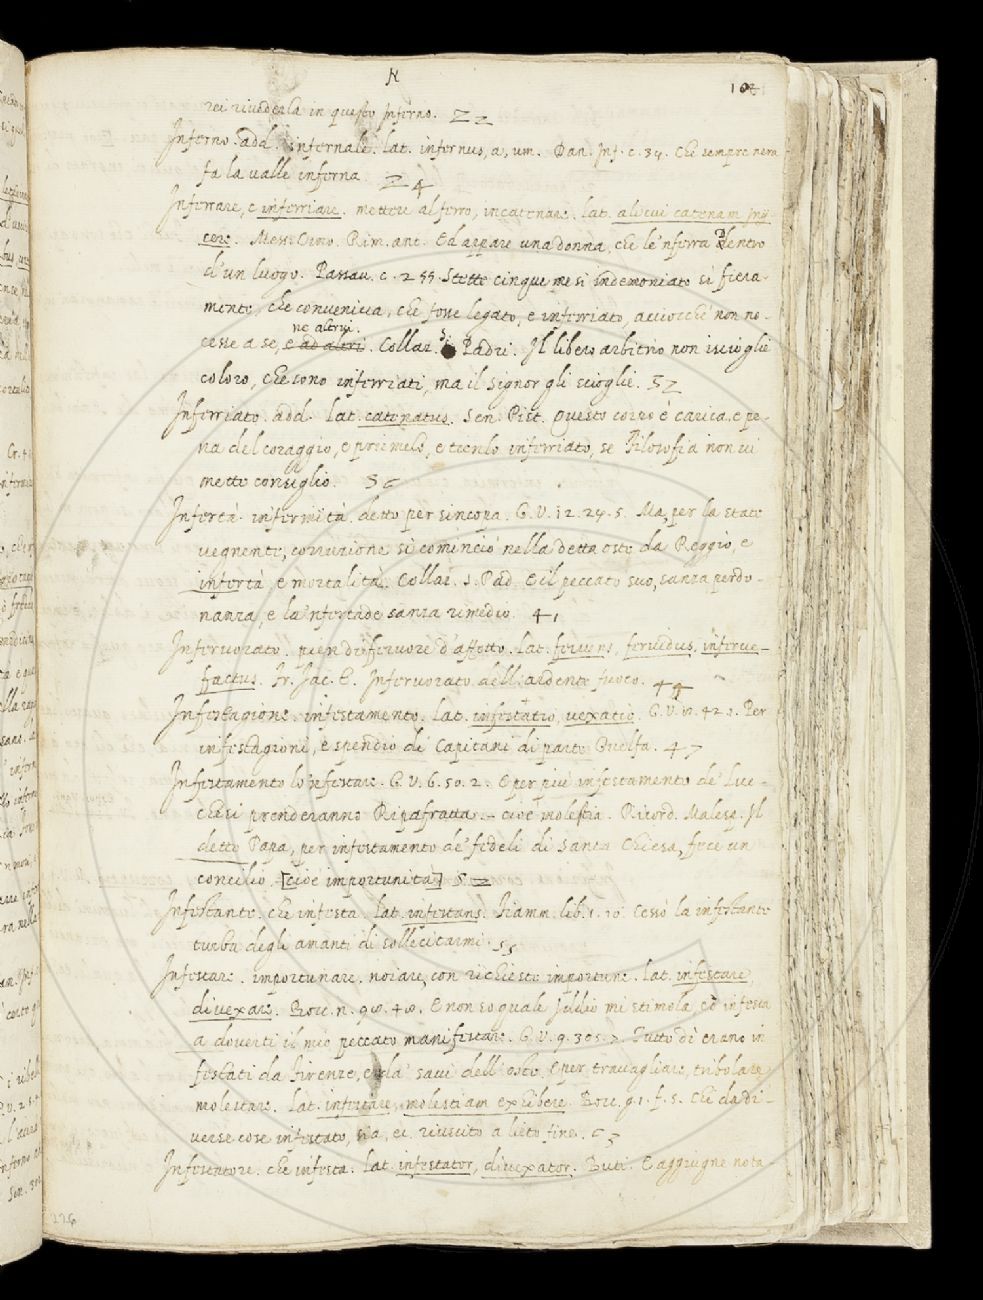 N 102
rei rivederla in questo Inferno. 22
Inferno. add. infernale. lat. infernus, a, um. Dan. Inf. c. 34. Che sempre nera
fa la valle inferna. 24
Inferrare, e inferriare. mettere al ferro, incatenare. lat. alicui catenam inij-
cere. Mess. Cino. Rim. ant. Ed appare una donna, che le 'nferra dentro
d'un luogo. Passav. c. 255. Stette cinque mesi indemoniato si fiera-
mente, che conveniva, che fosse legato, e inferriato, acciocchè non no-
ne altrui.
cesse a se, e ad altri. Collaz. S. Padri. Il libero arbitrio non iscioglie
coloro, che sono inferriati, ma il Signor gli scioglie. 32
Inferriato. add. lat. catenatus. Sen. Pist. Questo corpo è carica, e pe-
na del coraggio, e priemelo, e tienlo inferriato, se Filosofia non vi
mette consiglio. 36
Infertà. infermità. detto per sincopa. G. V. 12. 24. 5. Ma, per la state
vegnente, corruzione si cominciò nella detta oste da Reggio, e
infertà, e mortalità. Collaz. S. Pad. E il peccato suo, sanza perdo-
nanza, e la 'nfertade sanza rimedio. 41
Infervorato. pien di fervore d'affetto. lat. fervens, fervidus, inferve-
factus. Fr. Iac. T. Infervorato dell'ardente fuoco. 44
Infestagione. infestamento. lat. infestatio, vexatio. G. V. 42. 2. Per
infestagioni, e spendio de' Capitani di parte Guelfa. 47
Infestamento lo infestare. G. V. 6. 50. 2. E per più infestamento de' Luc-
chesi prenderanno Ripafratta. cioè molestia. Ricord. Malesp. Il
detto Papa, per infestamento de' fedeli di Santa Chiesa, fece un
concilio. [cioè importunità] 52
Infestante. che infesta. lat. infestans. Fiamm. lib. 1. 10. Cessò la infestante
turba degli amanti di sollecitarmi. 55
Infestare. importunare, noiare, con richieste importune. lat. infestare,
divexare. Bocc. n. 98. 40. E non so quale Iddio mi stimola, ed infesta
a doverti il mio peccato manifestare. G. V. 9. 305. 7. Tutto dì erano in
festati da Firenze, e da' savi dell'oste. E per travagliare, tribolare
molestare. lat. infestare, molestiam exhibere. Bocc. g. 1. f. 5. Chi da di-
verse cose infestato, sia, ec. riuscito a lieto fine. 63
Infestatore. che infesta. lat. infestator, divexator. Buti. E aggiugne nota-